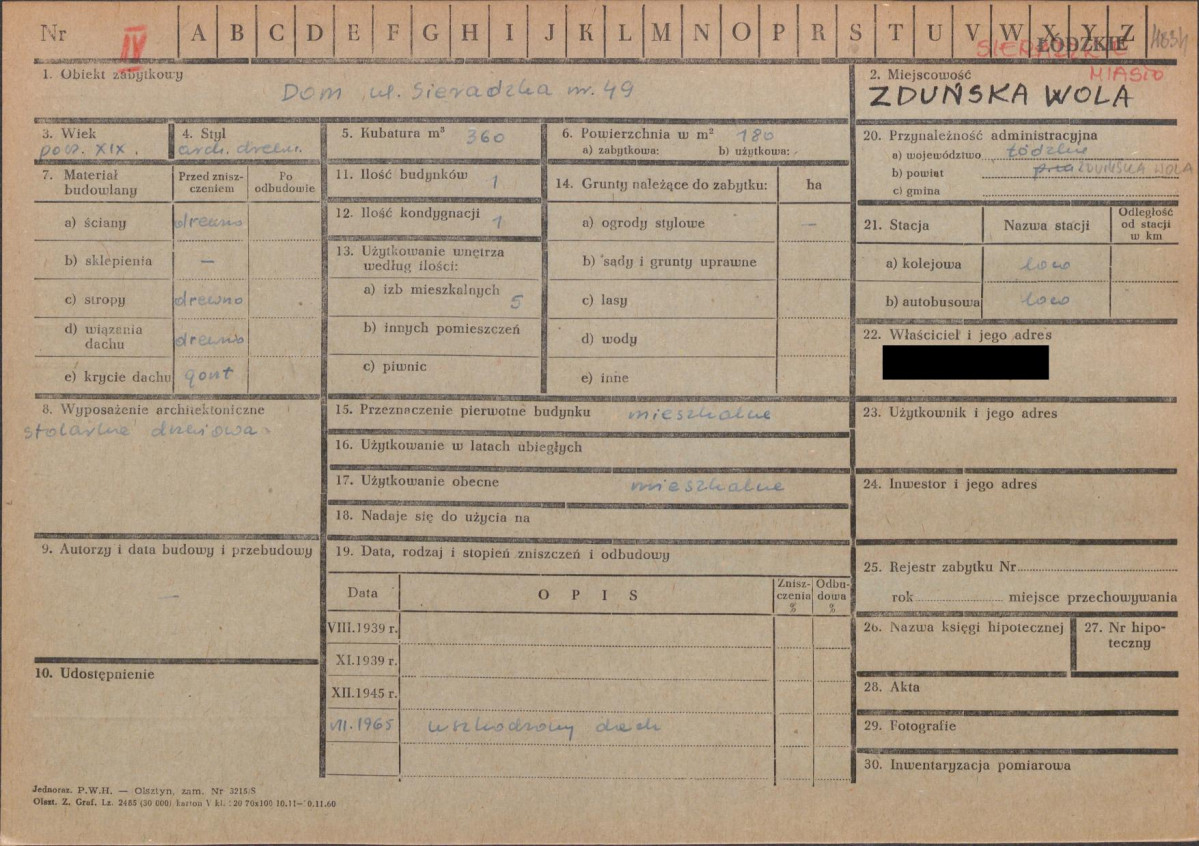 Nr IV A B C D E F G H I J K L M N O P R S T U V W X Y Z
ŁÓDZKIE
SIERADZKIE
MIASTO
1. Obiekt zabytkowy
Dom, ul. Sieradzka nr. 49
2. Miejscowość
ZDUŃSKA WOLA
3. Wiek
poł. XIX.
4. Styl
arch. drewn.
5. Kubatura m³ 360
6. Powierzchnia w m² 180
a) zabytkowa: b) użytkowa:
7. Materiał budowlany
Przed znisz-
czeniem
Po
odbudowie
a) ściany drewno
b) sklepienia —
c) stropy drewno
d) wiązania
dachu drewno
e) krycie dachu gont
8. Wyposażenie architektoniczne
stolarka drzwiowa
9. Autorzy i data budowy i przebudowy
—
10. Udostępnienie
11. Ilość budynków 1
12. Ilość kondygnacji 1
13. Użytkowanie wnętrza
według ilości:
a) izb mieszkalnych 5
b) innych pomieszczeń
c) piwnic
14. Grunty należące do zabytku: ha
a) ogrody stylowe —
b) sady i grunty uprawne
c) lasy
d) wody
e) inne
15. Przeznaczenie pierwotne budynku mieszkalne
16. Użytkowanie w latach ubiegłych
17. Użytkowanie obecne mieszkalne
18. Nadaje się do użycia na
19. Data, rodzaj i stopień zniszczeń i odbudowy
Data OPIS
Znisz-
czenia
%
Odbu-
dowa
%
VIII.1939 r.
XI.1939 r.
XII.1945 r.
VII.1965 uszkodzony dach
20. Przynależność administracyjna
a) województwo Łódzkie
b) powiat ZDUŃSKA WOLA
c) gmina
21. Stacja Nazwa stacji
Odległość
od stacji
w km
a) kolejowa loco
b) autobusowa loco
22. Właściciel i jego adres
23. Użytkownik i jego adres
24. Inwestor i jego adres
25. Rejestr zabytku Nr
rok miejsce przechowywania
26. Nazwa księgi hipotecznej
27. Nr hipo-
teczny
28. Akta
29. Fotografie
30. Inwentaryzacja pomiarowa
Jednoraz. P.W.H. — Olsztyn, zam. Nr 3218/S
Olszt. Z. Graf. Lz. 2485 (50 000) karton V kl. 120 70x100 10.11—10.11.60